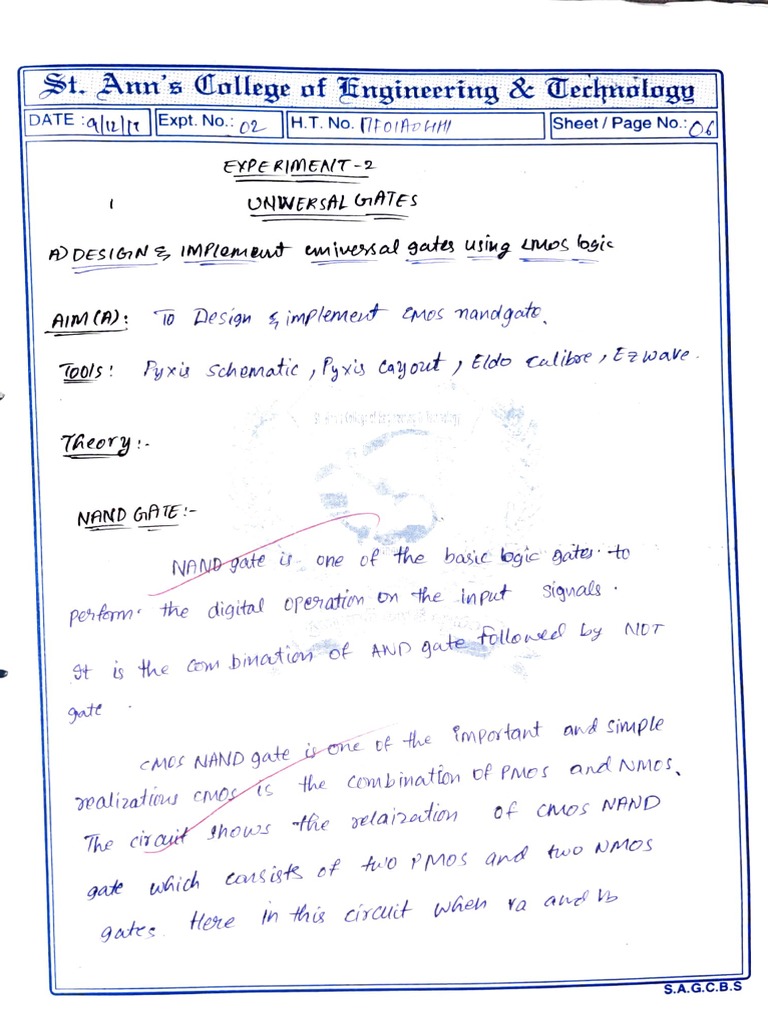 St. Ann's College of Engineering & Technology
DATE : 9/12/17 Expt. No.: 02 H.T. No. Sheet / Page No.: 06
EXPERIMENT-2
UNIVERSAL GATES
A) DESIGN & IMPlement universal gates using CMOS logic
AIM(A): To Design & implement CMOS nandgate.
Tools: Pyxis schematic, Pyxis Layout, Eldo Calibre, Ezwave.
Theory:-
NAND GATE:-
NAND gate is one of the basic logic gates to
perform the digital operation on the input signals.
It is the combination of AND gate followed by NOT
gate.
CMOS NAND gate is one of the important and simple
realizations CMOS is the combination of PMOS and NMOS.
The circuit shows the relaization of CMOS NAND
gate which consists of two PMOS and two NMOS
gates. Here in this circuit when va and vb
S.A.G.C.B.S